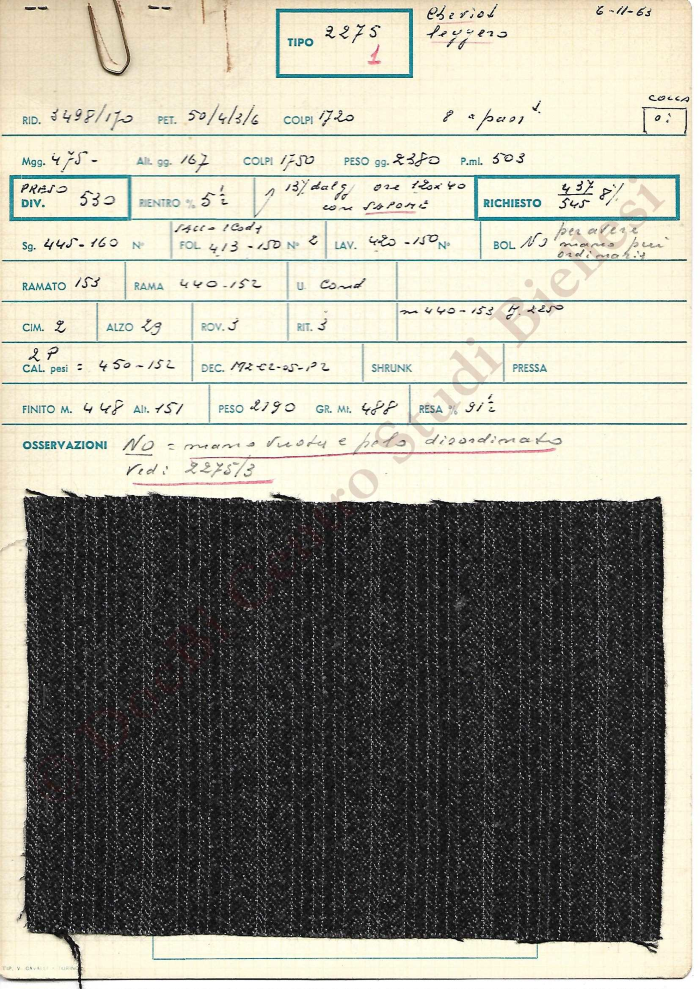 Cheviot
leggero
6-11-63
TIPO 2275
1
COLLA
RID. 3498/170 PET. 50/4/3/6 COLPI 1720 8 a pass
Mgg. 475- Alt. gg. 167 COLPI 1750 PESO gg. 2380 P.ml. 503
PRESO
DIV. 530 RIENTRO % 5 1/2 13% dal gg ore 120 x 40
con SAPONE RICHIESTO 437/545 8%
Sg. 445-160 N° FOL. 413-150 N° 2 LAV. 420-150 N° BOL. NO per avere
mano più
ordinaria
RAMATO 153 RAMA 440-152 U. Cond
CIM. 2 ALZO 29 ROV. 3 RIT. 3 m 440-153 2250
2P
CAL. pesi = 450-152 DEC. M2-C2-05-P2 SHRUNK PRESSA
FINITO M. 448 Alt. 151 PESO 2190 GR. Mt. 488 RESA % 91 1/2
OSSERVAZIONI NO = mano vuota e pelo disordinato
Vedi 2275/3
© DocBi Centro Studi Biellesi